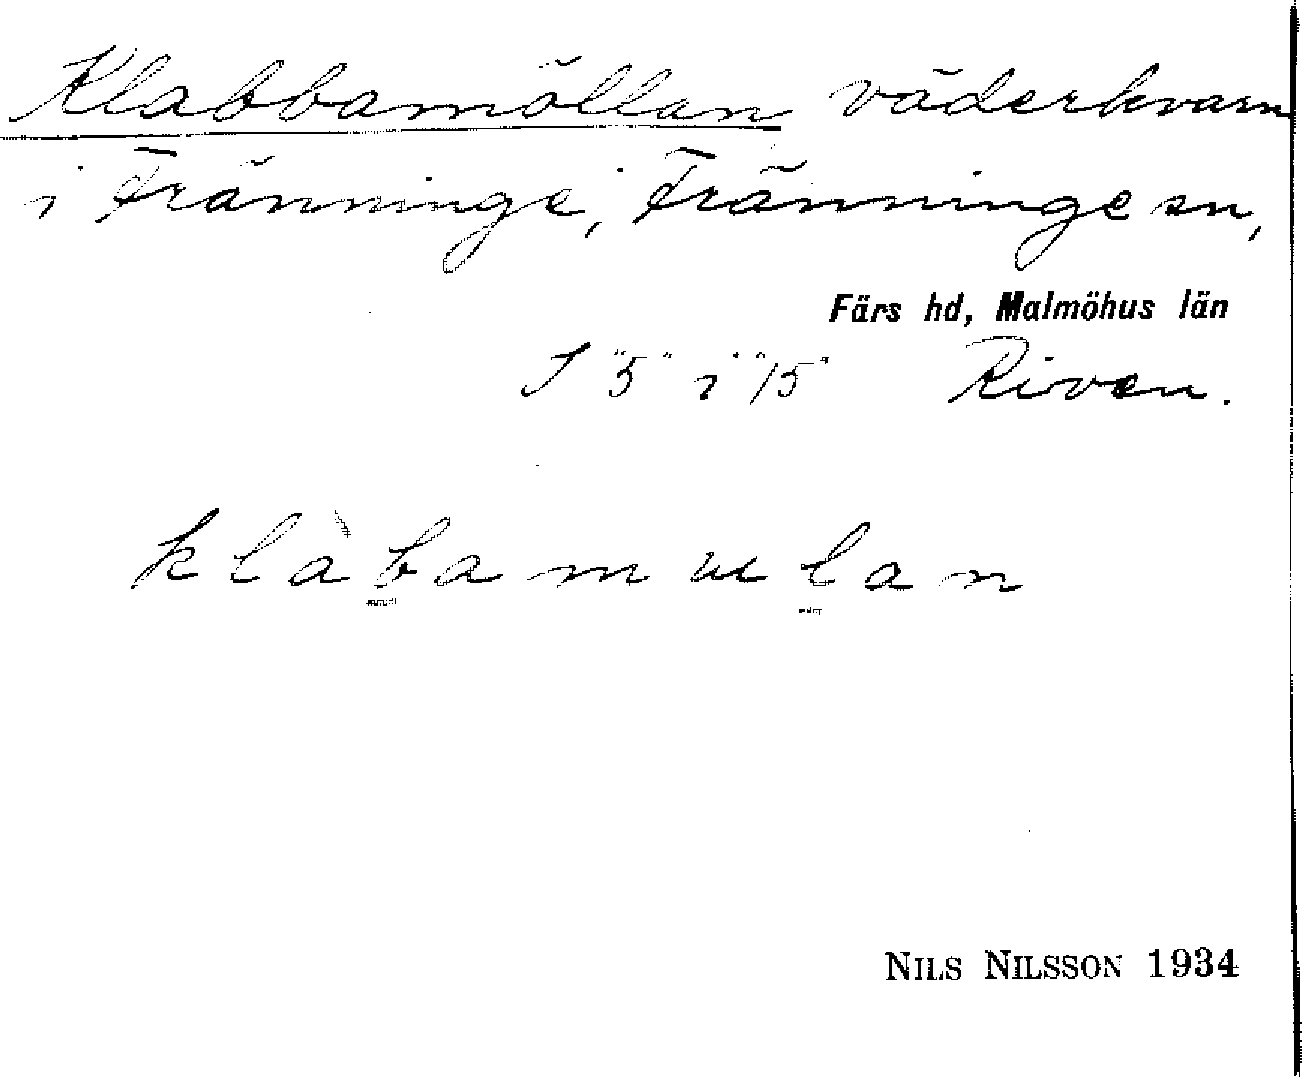 Klabbamöllan väderkvarn
i Fränninge, Fränninge sn,
Färs hd, Malmöhus län
S "5" i "15" Riven.
klàbamulan
NILS NILSSON 1934